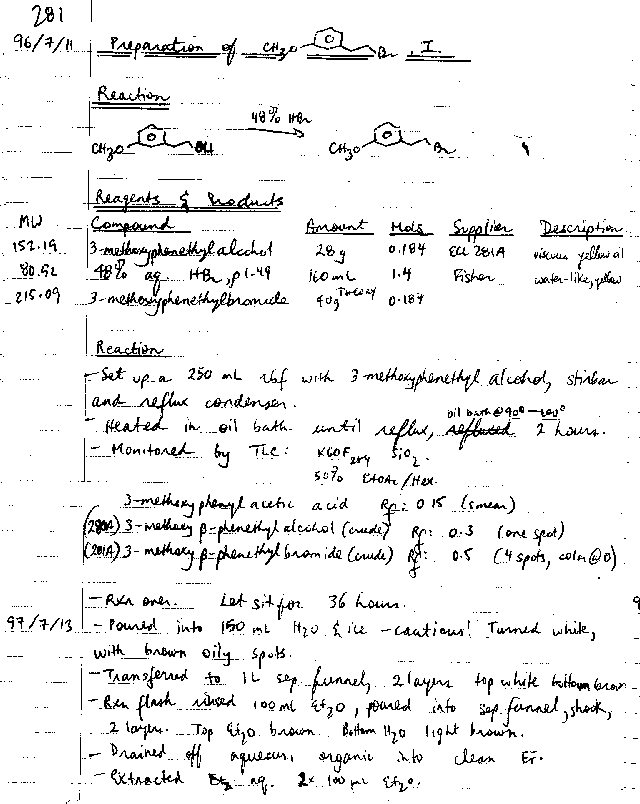 281
96/7/11 Preparation of CH3O Br , I.
Reaction
48% HBr
CH3O OH CH3O Br
Reagents & Products
MW Compound Amount Mols Supplier Description
152.19 3-methoxyphenethyl alcohol 28g 0.184 281A viscous yellow oil
80.92 48% aq. HBr, ρ1.49 160mL 1.4 Fisher water-like, yellow
215.09 3-methoxyphenethylbromide 40g THEORY 0.184
Reaction
- Set up a 250 mL rbf with 3-methoxyphenethyl alcohol, stirbar
and reflux condenser.
oil bath @ 90°-100°
- Heated in oil bath until reflux, refluxed 2 hours.
- Monitored by TLC: K60F254 SiO2
50% EtOAc/Hex.
3-methoxyphenyl acetic acid Rf: 0.15 (smear)
(280A) 3-methoxy β-phenethyl alcohol (crude) Rf: 0.3 (one spot)
(281A) 3-methoxy β-phenethyl bromide (crude) Rf: 0.5 (4 spots, color @ 0)
- Rxn over. Let sit for 36 hours.
97/7/13 - Poured into 150 mL H2O & ice - cautious! Turned white,
with brown oily spots.
- Transferred to 1L sep. funnel, 2 layers top white bottom brown
- Rxn flask rinsed 100mL Et2O, poured into sep. funnel, shook,
2 layers. Top Et2O brown. Bottom H2O light brown.
- Drained off aqueous, organic into clean Er.
- Extracted aq. 2x 100 mL Et2O.